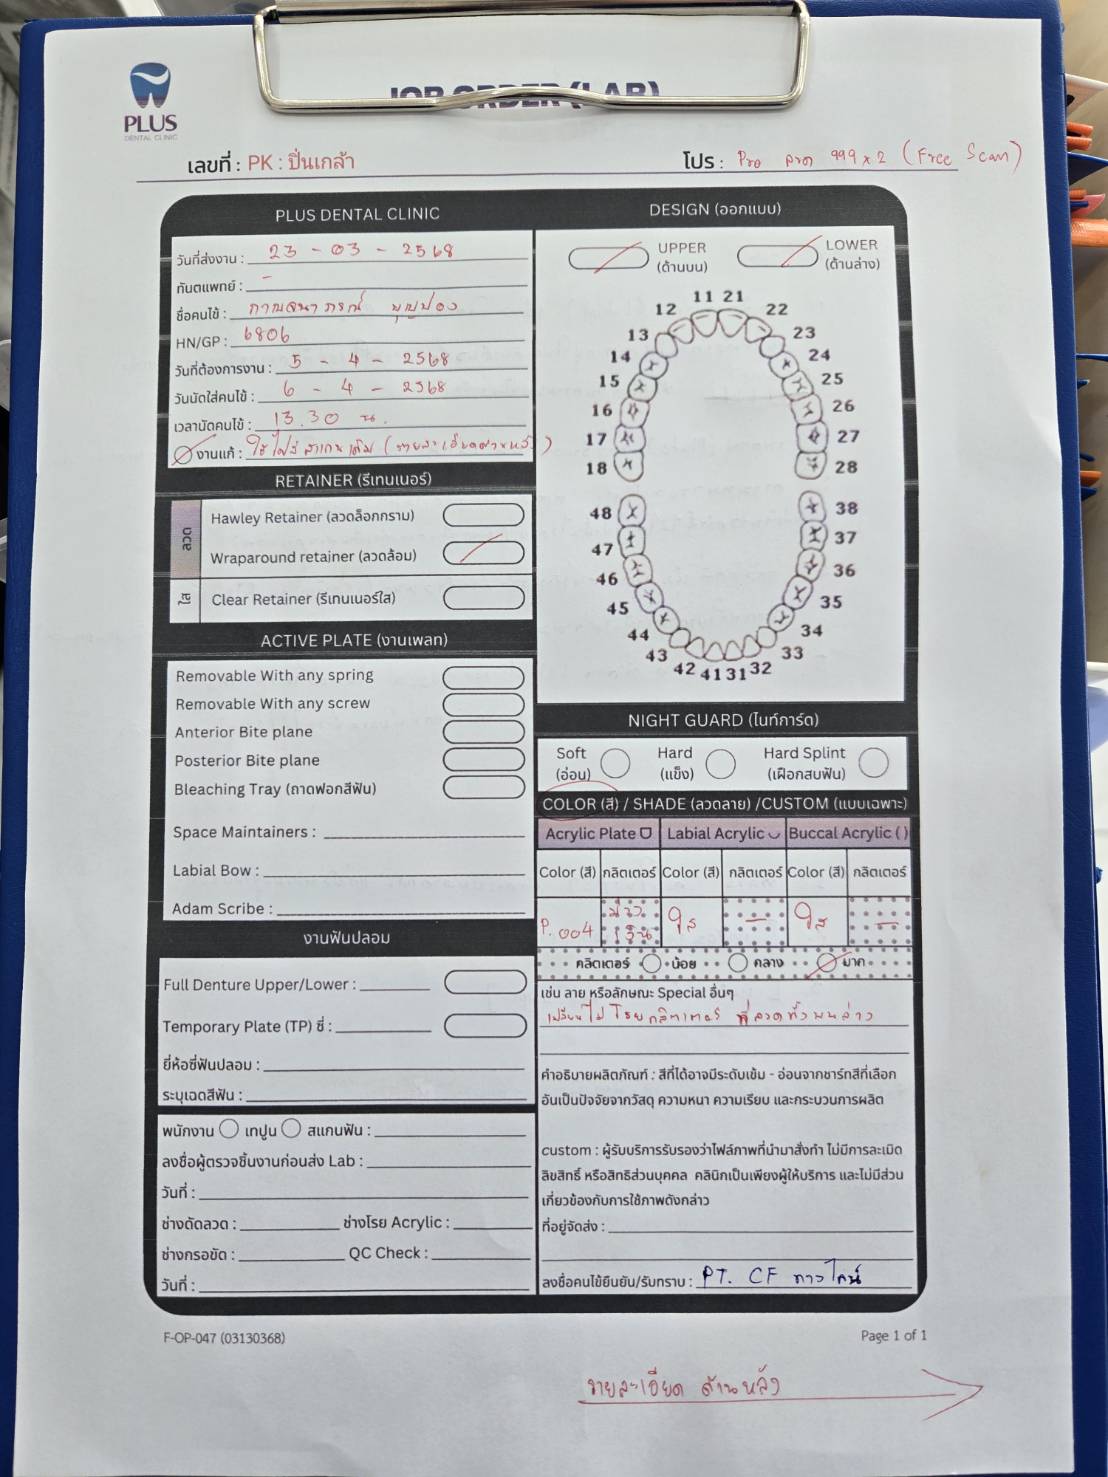 PLUS
DENTAL CLINIC
JOB ORDER (LAB)
เลขที่ : PK : ปิ่นเกล้า
โปร : Pro ลวด 999 x 2 (Free Scan)
PLUS DENTAL CLINIC
วันที่ส่งงาน : 23 - 03 - 2568
ทันตแพทย์ : -
ชื่อคนไข้ : กาญจนาภรณ์
HN/GP : 6806
วันที่ต้องการงาน : 5 - 4 - 2568
วันนัดใส่คนไข้ : 6 - 4 - 2568
เวลานัดคนไข้ : 13.30 น.
งานแก้ : ใช้ไฟล์สแกนเดิม (รายละเอียดด้านหลัง)
RETAINER (รีเทนเนอร์)
ลวด
Hawley Retainer (ลวดล็อกกราม)
Wraparound retainer (ลวดล้อม)
ใส
Clear Retainer (รีเทนเนอร์ใส)
ACTIVE PLATE (งานเพลท)
Removable With any spring
Removable With any screw
Anterior Bite plane
Posterior Bite plane
Bleaching Tray (ถาดฟอกสีฟัน)
Space Maintainers :
Labial Bow :
Adam Scribe :
งานฟันปลอม
Full Denture Upper/Lower :
Temporary Plate (TP) ซี่ :
ยี่ห้อซี่ฟันปลอม :
ระบุเฉดสีฟัน :
พนักงาน เทปูน สแกนฟัน :
ลงชื่อผู้ตรวจชิ้นงานก่อนส่ง Lab :
วันที่ :
ช่างดัดลวด : ช่างโรย Acrylic :
ช่างกรอขัด : QC Check :
วันที่ :
DESIGN (ออกแบบ)
UPPER
(ด้านบน)
LOWER
(ด้านล่าง)
11 21
12 22
13 23
14 24
15 25
16 26
17 27
18 28
48 38
47 37
46 36
45 35
44 34
43 33
42 41 31 32
NIGHT GUARD (ไนท์การ์ด)
Soft
(อ่อน)
Hard
(แข็ง)
Hard Splint
(เฝือกสบฟัน)
COLOR (สี) / SHADE (ลวดลาย) /CUSTOM (แบบเฉพาะ)
Acrylic Plate Labial Acrylic Buccal Acrylic ( )
Color (สี) กลิตเตอร์ Color (สี) กลิตเตอร์ Color (สี) กลิตเตอร์
P.004 ใส - ใส -
กลิตเตอร์ น้อย กลาง มาก
เช่น ลาย หรือลักษณะ Special อื่นๆ
เปลี่ยนไปโรยกลิตเตอร์ ที่ลวดทั้งบนล่าง
คำอธิบายผลิตภัณฑ์ : สีที่ได้อาจมีระดับเข้ม - อ่อนจากชาร์ทสีที่เลือก
อันเป็นปัจจัยจากวัสดุ ความหนา ความเรียบ และกระบวนการผลิต
custom : ผู้รับบริการรับรองว่าไฟล์ภาพที่นำมาสั่งทำ ไม่มีการละเมิด
ลิขสิทธิ์ หรือสิทธิส่วนบุคคล คลินิกเป็นเพียงผู้ให้บริการ และไม่มีส่วน
เกี่ยวข้องกับการใช้ภาพดังกล่าว
ที่อยู่จัดส่ง :
ลงชื่อคนไข้ยืนยัน/รับทราบ : PT. CF ทางไลน์
F-OP-047 (03130368)
Page 1 of 1
รายละเอียด ด้านหลัง